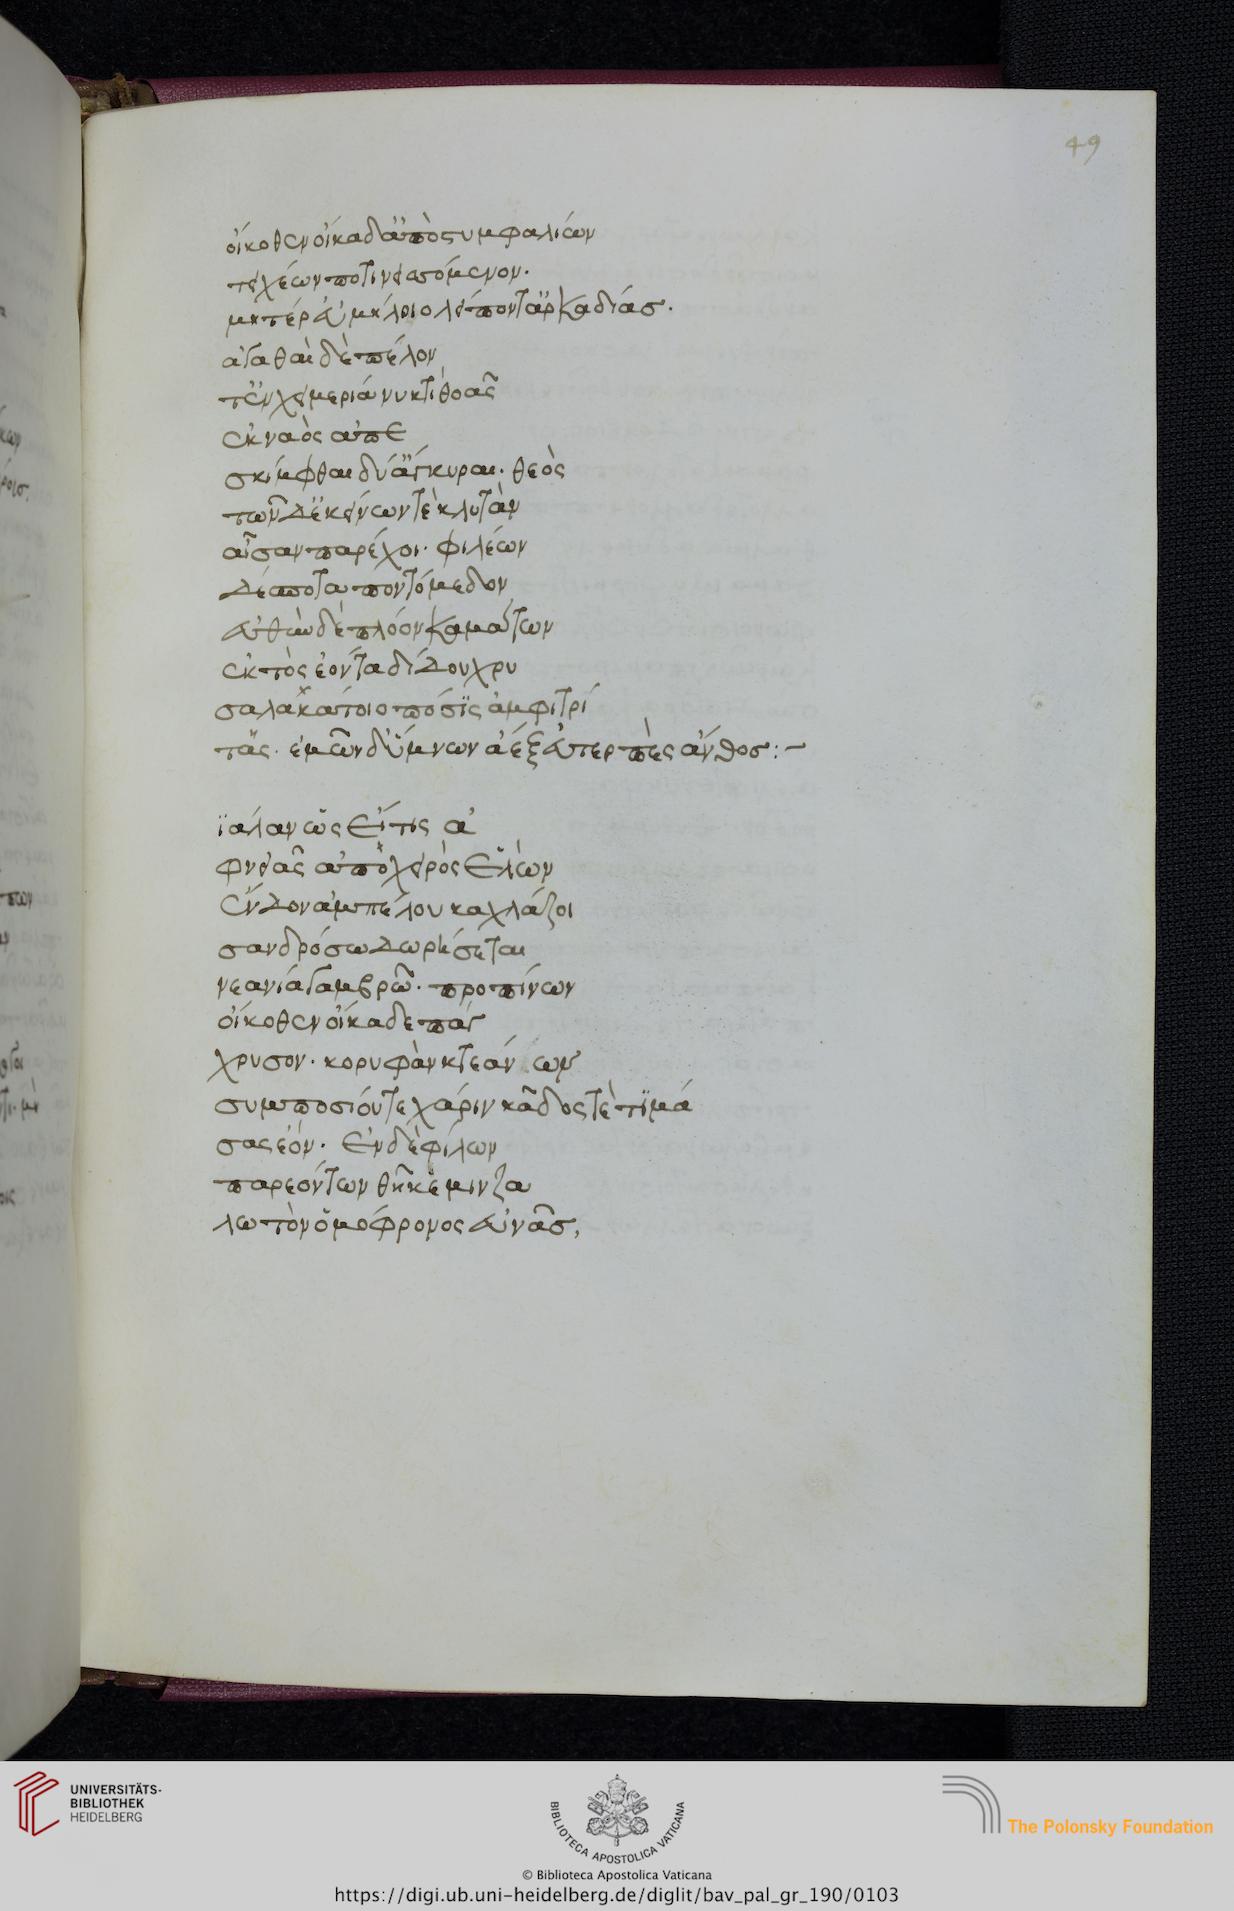 49
οἴκοθεν οἴκαδ ἀπὸ στυμφαλίων
τειχέων ποτινεισόμενον.
ματέρ εὐμήλοιο λείποντ ἀρκαδίας.
ἀγαθαὶ δὲ πέλον
τ ἐν χειμερία νυκτὶ θοᾶς
ἐκ ναὸς ἀπε
σκίμφθαι δύ ἄγκυραι. θεὸς
τῶνδε κείνων τὲ κλυτὰν
αἶσαν παρέχοι. φιλέων
δέσποτα ποντόμεδον
εὐθὺν δὲ πλόον καμάτων
ἐκτὸς ἐόντα δίδου χρυ
σαλακάτοιο πόσις ἀμφιτρί
τας. ἐμῶν δ ὕμνων ἄεξ εὐτερπὲς ἄνθος:–
φιάλαν ὡς εἴ τις ἀ
φνειᾶς ἀπὸ χειρὸς ἑλὼν
ἔνδον ἀμπέλου καχλάζοι
σαν δρόσω δωρήσεται
νεανία γαμβρῶ. προπίνων
οἴκοθεν οἴκαδε πάγ
χρυσον. κορυφὰν κτεάνων
συμποσίου τε χάριν κᾶδός τὲ τιμά
σας ἑόν. ἐν δὲ φίλων
παρεόντων θῆκέ μιν ζα
λωτὸν ὁμόφρονος εὐνᾶς,
UNIVERSITÄTS-
BIBLIOTHEK
HEIDELBERG
BIBLIOTECA APOSTOLICA VATICANA
The Polonsky Foundation
© Biblioteca Apostolica Vaticana
https://digi.ub.uni-heidelberg.de/diglit/bav_pal_gr_190/0103